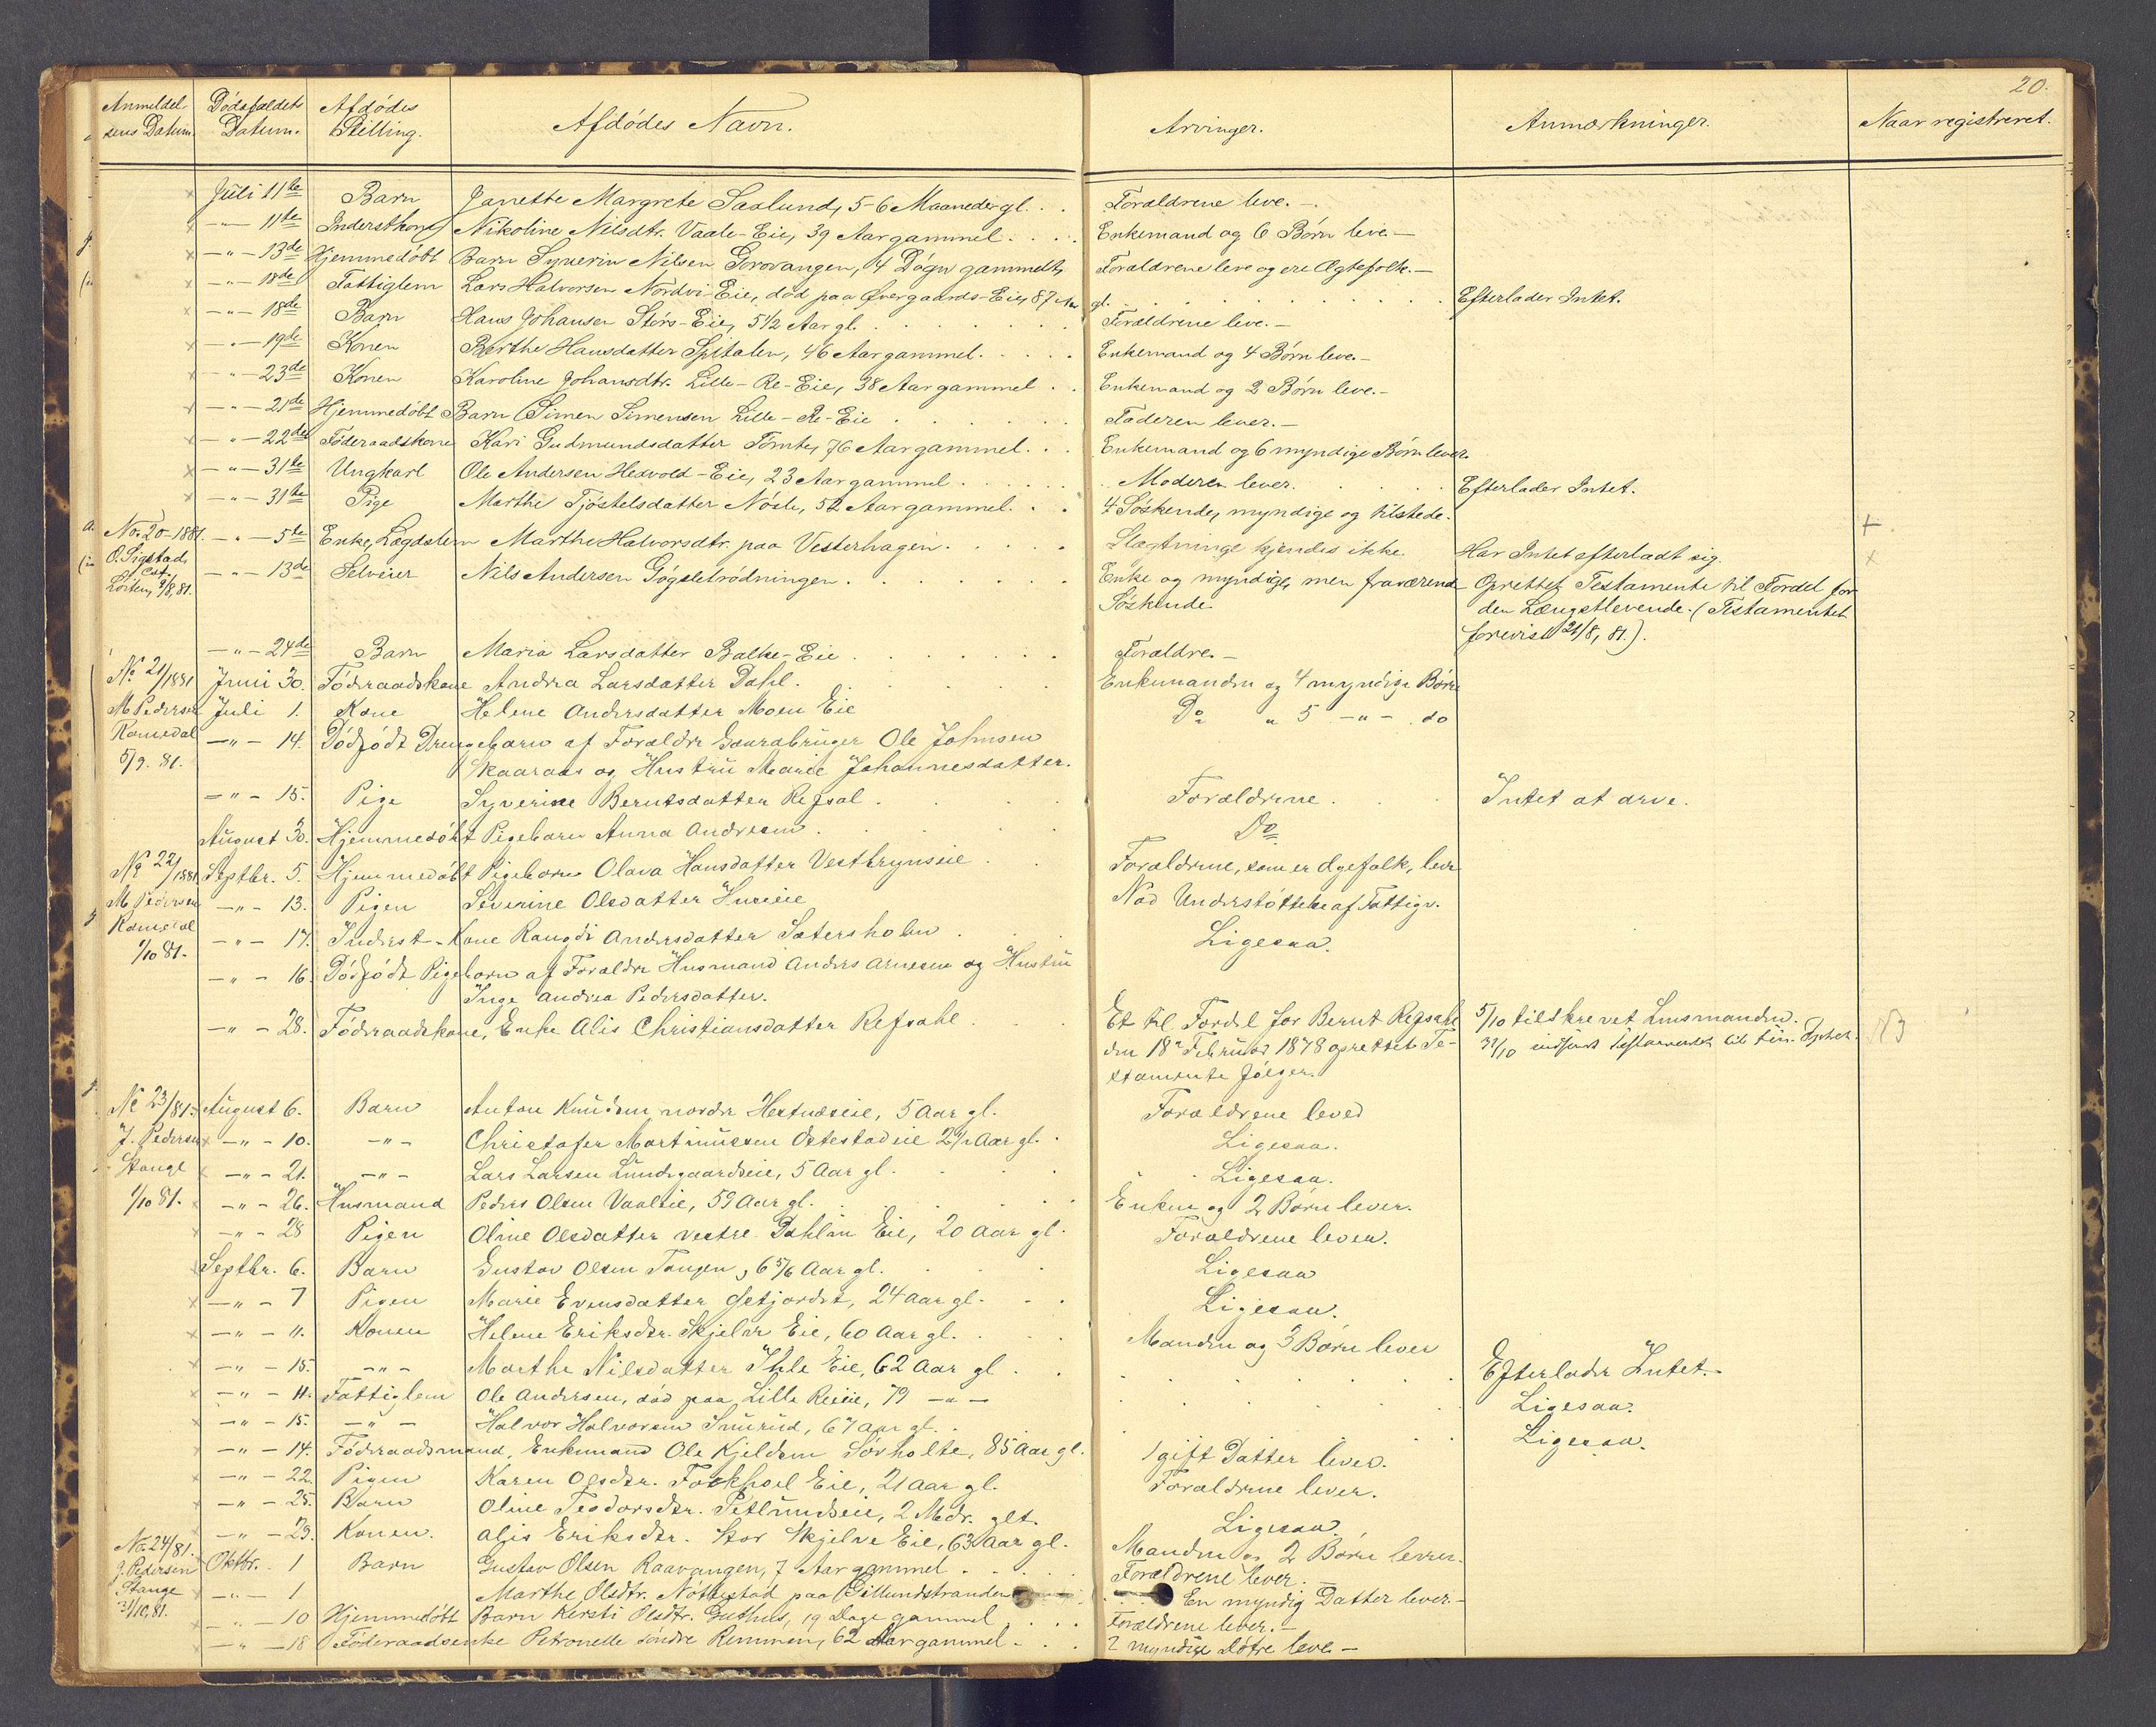 20.
Anmeldel- Dödsfaldets Afdödes
sens Datum. Datum. Stilling. Afdödes Navn. Arvinger. Anmærkninger. Naar registreret.
Juli 11te Barn Janette Margrete Saxlund, 5-6 Maaneder gl. Forældrene leve. -
-"- 11te Inderstkone Nikoline Nilsdtr. Vaale-Eie, 39 Aar gammel. Enkemand og 6 Börn leve. -
-"- 13de Hjemmedöbt Barn Syverin Nilsen Gorovangen, 4 Dögn gammelt, Forældrene leve og ere Ægtefolk. -
-"- 18de Fattiglem Lars Halvorsen Nordvi-Eie, död paa Övergaards-Eie, 87 Aar gl. Efterlader Intet.
-"- 18de Barn Hans Johansen Störs-Eie, 5 1/2 Aar gl. Forældrene leve. -
-"- 19de Konen Berthe Hansdatter Spitalen, 46 Aar gammel. Enkemand og 4 Börn leve. -
-"- 23de Konen Karoline Johansdtr. Lille-Re-Eie, 38 Aar gammel. Enkemand og 2 Börn leve. -
-"- 21de Hjemmedöbt Barn Simen Simensen Lille-Re-Eie Faderen lever. -
-"- 22de Föderaadskone Kari Gudmundsdatter Tomte, 76 Aar gammel. Enkemand og 6 myndige Börn lever.
-"- 31te Ungkarl Ole Andersen Hexvold-Eie, 23 Aar gammel. Moderen lever. Efterlader Intet.
-"- 31te Pige Marthe Tjöstelsdatter Nösle, 52 Aar gammel. 4 Söskende, myndige og tilstede.
No. 20-1881. -"- 5te Enke, Lægdslem Marthe Halvorsdtr. paa Vesterhagen. Slægtninge kjendes ikke. Har Intet efterladt sig.
O. Sigstad, -"- 13de Selveier Nils Andersen Gögsletrödningen. Enke og myndige, men fraværende Oprettet Testamente til Fordel for
Löiten, 9/8, 81. Söskende. den Længstlevende. (Testamentet
forevist 21/8, 81.).
-"- 24de Barn Maria Larsdatter Balke-Eie Forældre. -
No 21/1881 Juni 30. Föderaadskone Andrea Larsdatter Dahl. Enkemanden og 4 myndige Börn
M Pedersen Juli 1. Kone Helene Andersdatter Moen Eie Do " 5 -"- do
Romedal -"- 14. Dödfödt Drengebarn af Forældre Gaardbruger Ole Johnsen
5/9. 81. Skaaraas og Hustru Marie Johannesdatter.
-"- 15. Pige Syverine Berntsdatter Refsal. Forældrene. Intet at arve.
August 30. Hjemmedöbt Pigebarn Anna Andresen. Do
No 22/1881 Septbr. 5. Hjemmedöbt Pigebarn Olava Hansdatter Vestbrynseie. Forældrene, som er Ægefolk, lever
M Pedersen -"- 13. Pigen Severine Olsdatter Huseeie Nød Understöttelse af Fattigv.
Romedal -"- 17. Inderst-Kone Rangdi Andersdatter Sætersholm. Ligesaa.
1/10 81. -"- 16. Dödfödt Pigebarn af Forældre Husmand Anders Arnesen og Hustru
Inge Andrea Pedersdatter.
-"- 28. Föderaadskone, Enke Alis Christiansdatter Refsahl. Et til Fordel for Bernt Refsahl 5/10 tilskrevet Lensmanden.
den 18de Februar 1878 oprettet Te- 31/10 indsendt testamentet til
stamente fölger.
No 23/81. August 6. Barn Anton Knudsen nordre Hertnæseie, 5 Aar gl. Forældrene lever
J. Pedersen -"- 10. -"- Christofer Martinussen Ostestadeie 2 1/2 Aar gl. Ligesaa.
Stange -"- 21. -"- Lars Larsen Lundsgaardseie, 5 Aar gl. Ligesaa.
1/10 81. -"- 26. Husmand Peder Olsen Vaaleie, 59 Aar gl. Enken og 2 Börn lever.
-"- 28 Pigen Oline Olsdatter vestre Dahlen Eie, 20 Aar gl. Forældrene lever.
Septbr. 6. Barn Gustav Olsen Tangen, 6 5/6 Aar gl. Ligesaa
-"- 7 Pigen Marie Evensdatter Gjetjordet, 24 Aar gl. Ligesaa.
-"- 11. Konen Helene Eriksdtr. Skjelve Eie, 60 Aar gl. Manden og 3 Börn lever
-"- 15. -"- Marthe Nilsdatter Ihle Eie, 62 Aar gl. Efterlader Intet.
-"- 11. Fattiglem Ole Andersen, död paa Lille Reeie, 79 -"- Ligesaa.
-"- 15. -"- Halvor Halvorsen Snurud, 67 Aar gl. Ligesaa.
-"- 14. Föderaadsmand, Enkemand Ole Kjeldsen Sörholte, 85 Aar gl. 1 gift Datter lever.
-"- 22. Pigen Karen Olsdtr. Fockhoel Eie, 21 Aar gl. Forældrene lever.
-"- 25. Barn Oline Teodorsdtr. Petlundseie, 2 Mdr. glt. Ligesaa.
-"- 29. Konen. Alis Eriksdtr. Stor Skjelve Eie, 63 Aar gl. Manden og 2 Börn lever.
No. 24/81. Oktbr. 1 Barn Gustav Olsen Raavangen, 7 Aar gammel Forældrene lever.
J. Pedersen -"- 1 Marthe Olsdtr. Nöttestad paa Gillundstranden En myndig Datter lever. -
Stange -"- 10 Hjemmedöbt Barn Kersti Olsdtr. Guthus, 19 Dage gammel Forældrene lever. -
31/10, 81. -"- 18 Föderaadsenke Petronelle söndre Remmen, 62 Aar gammel. 2 myndige Dötre leve. -